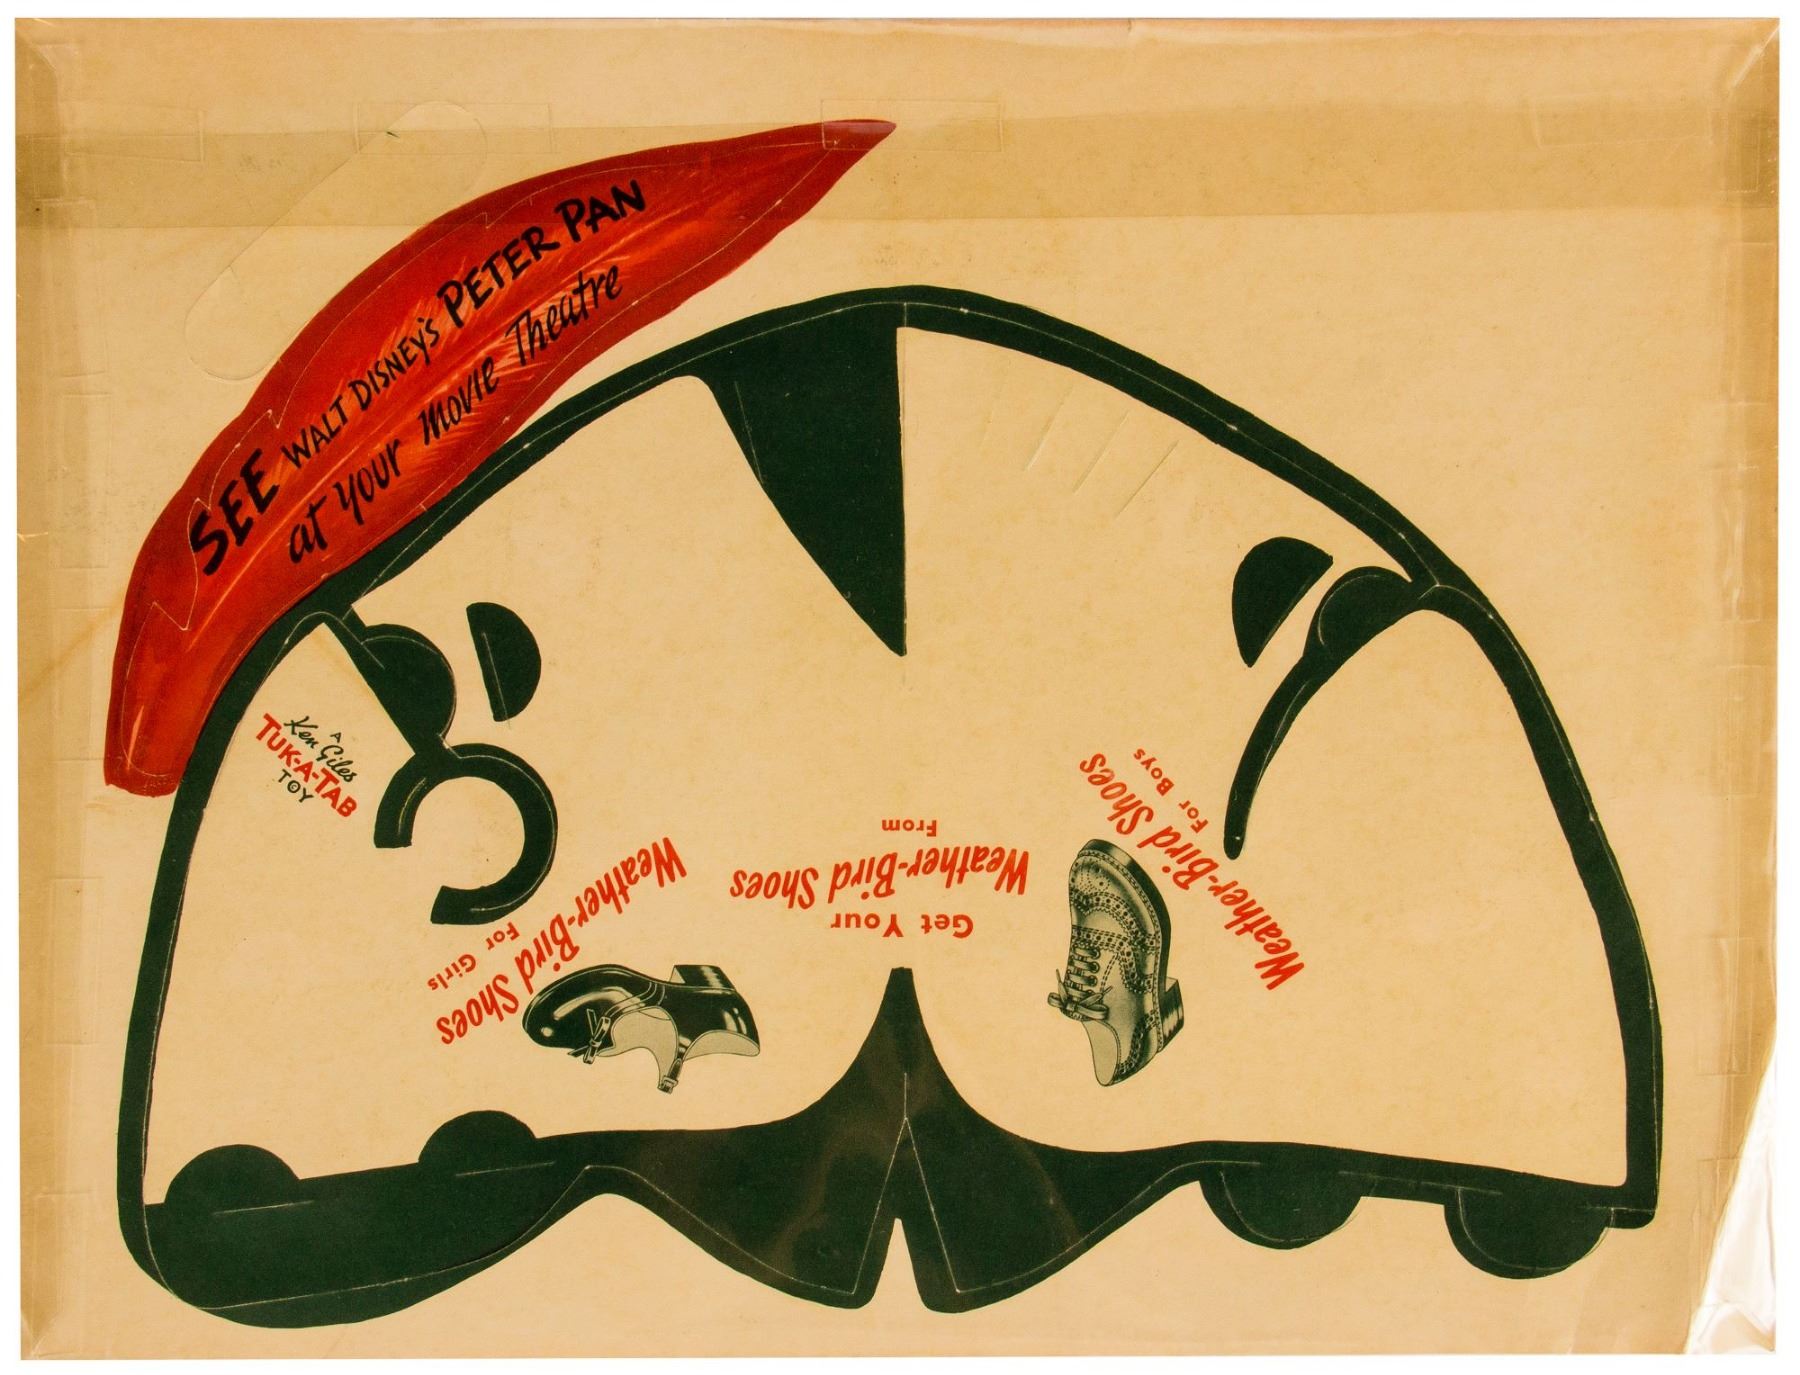 SEE WALT DISNEY'S PETER PAN
at your movie Theatre
A
Ken Giles
TUK-A-TAB
TOY
Weather-Bird Shoes
For Girls
Get Your
Weather-Bird Shoes
From
Weather-Bird Shoes
For Boys